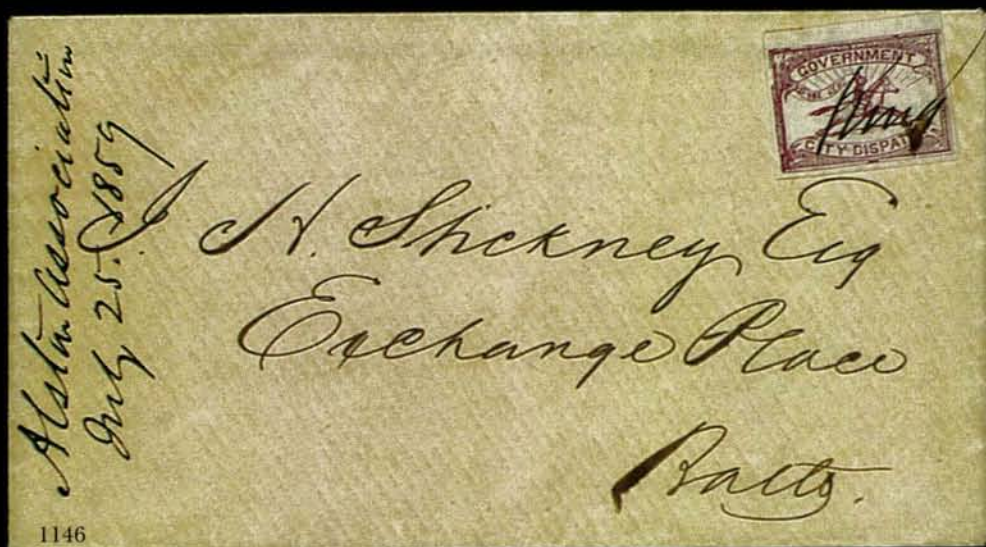 Alston Association
July 25. 1859
GOVERNMENT
CITY DISPATCH
J H. Stickney Esq
Exchange Place
Balto.
1146